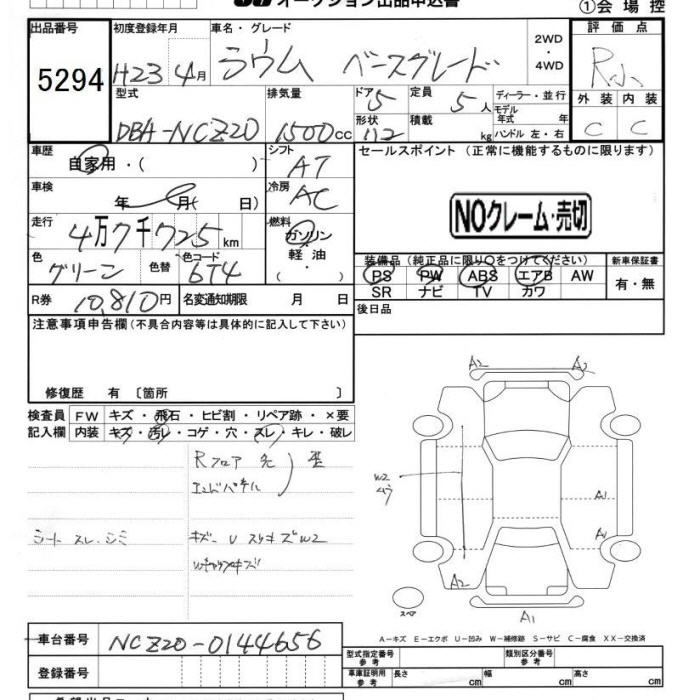 オークション出品申込書
①会場控
出品番号 初度登録年月 車名・グレード 評価点
5294 H23 4月 ラウム ベースグレード 2WD ・ 4WD R小
型式 排気量 ドア 定員 ディーラー・並行 外装 内装
DBA-NCZ20 1500cc 5 5人 モデル年式 年 C C
形状 積載
kg ハンドル 左・右
車歴 シフト セールスポイント (正常に機能するものに限ります)
自家用・( ) AT
車検 冷房
年 月( 日) AC NOクレーム・売切
走行 燃料
4万7千725km ガソリン
軽油
・( )
色 色替 色コード 装備品 (純正品に限り○をつけてください) 新車保証書
グリーン 6T4 PS PW ABS エアB AW 有・無
SR ナビ TV カワ
R券 10,810円 名変通知期限 月 日 後日品
注意事項申告欄(不具合内容等は具体的に記入して下さい)
修復歴 有 〔箇所 〕
検査員 FW キズ・飛石・ヒビ割・リペア跡・×要
記入欄 内装 キズ・汚レ・コゲ・穴・スレ・キレ・破レ
Rフロア 先
エンドパネル
シート スレ.シミ キズ- U スリキズW2
A2 A2
W2
A1
A1
A2
A1
スペア
A-キズ E-エクボ U-凹み W-補修跡 S-サビ C-腐食 XX-交換済
車台番号 NCZ20-0144656
型式指定番号 参考 類別区分番号 参考
登録番号 車庫証明用 参考 長さ cm 幅 cm 高さ cm